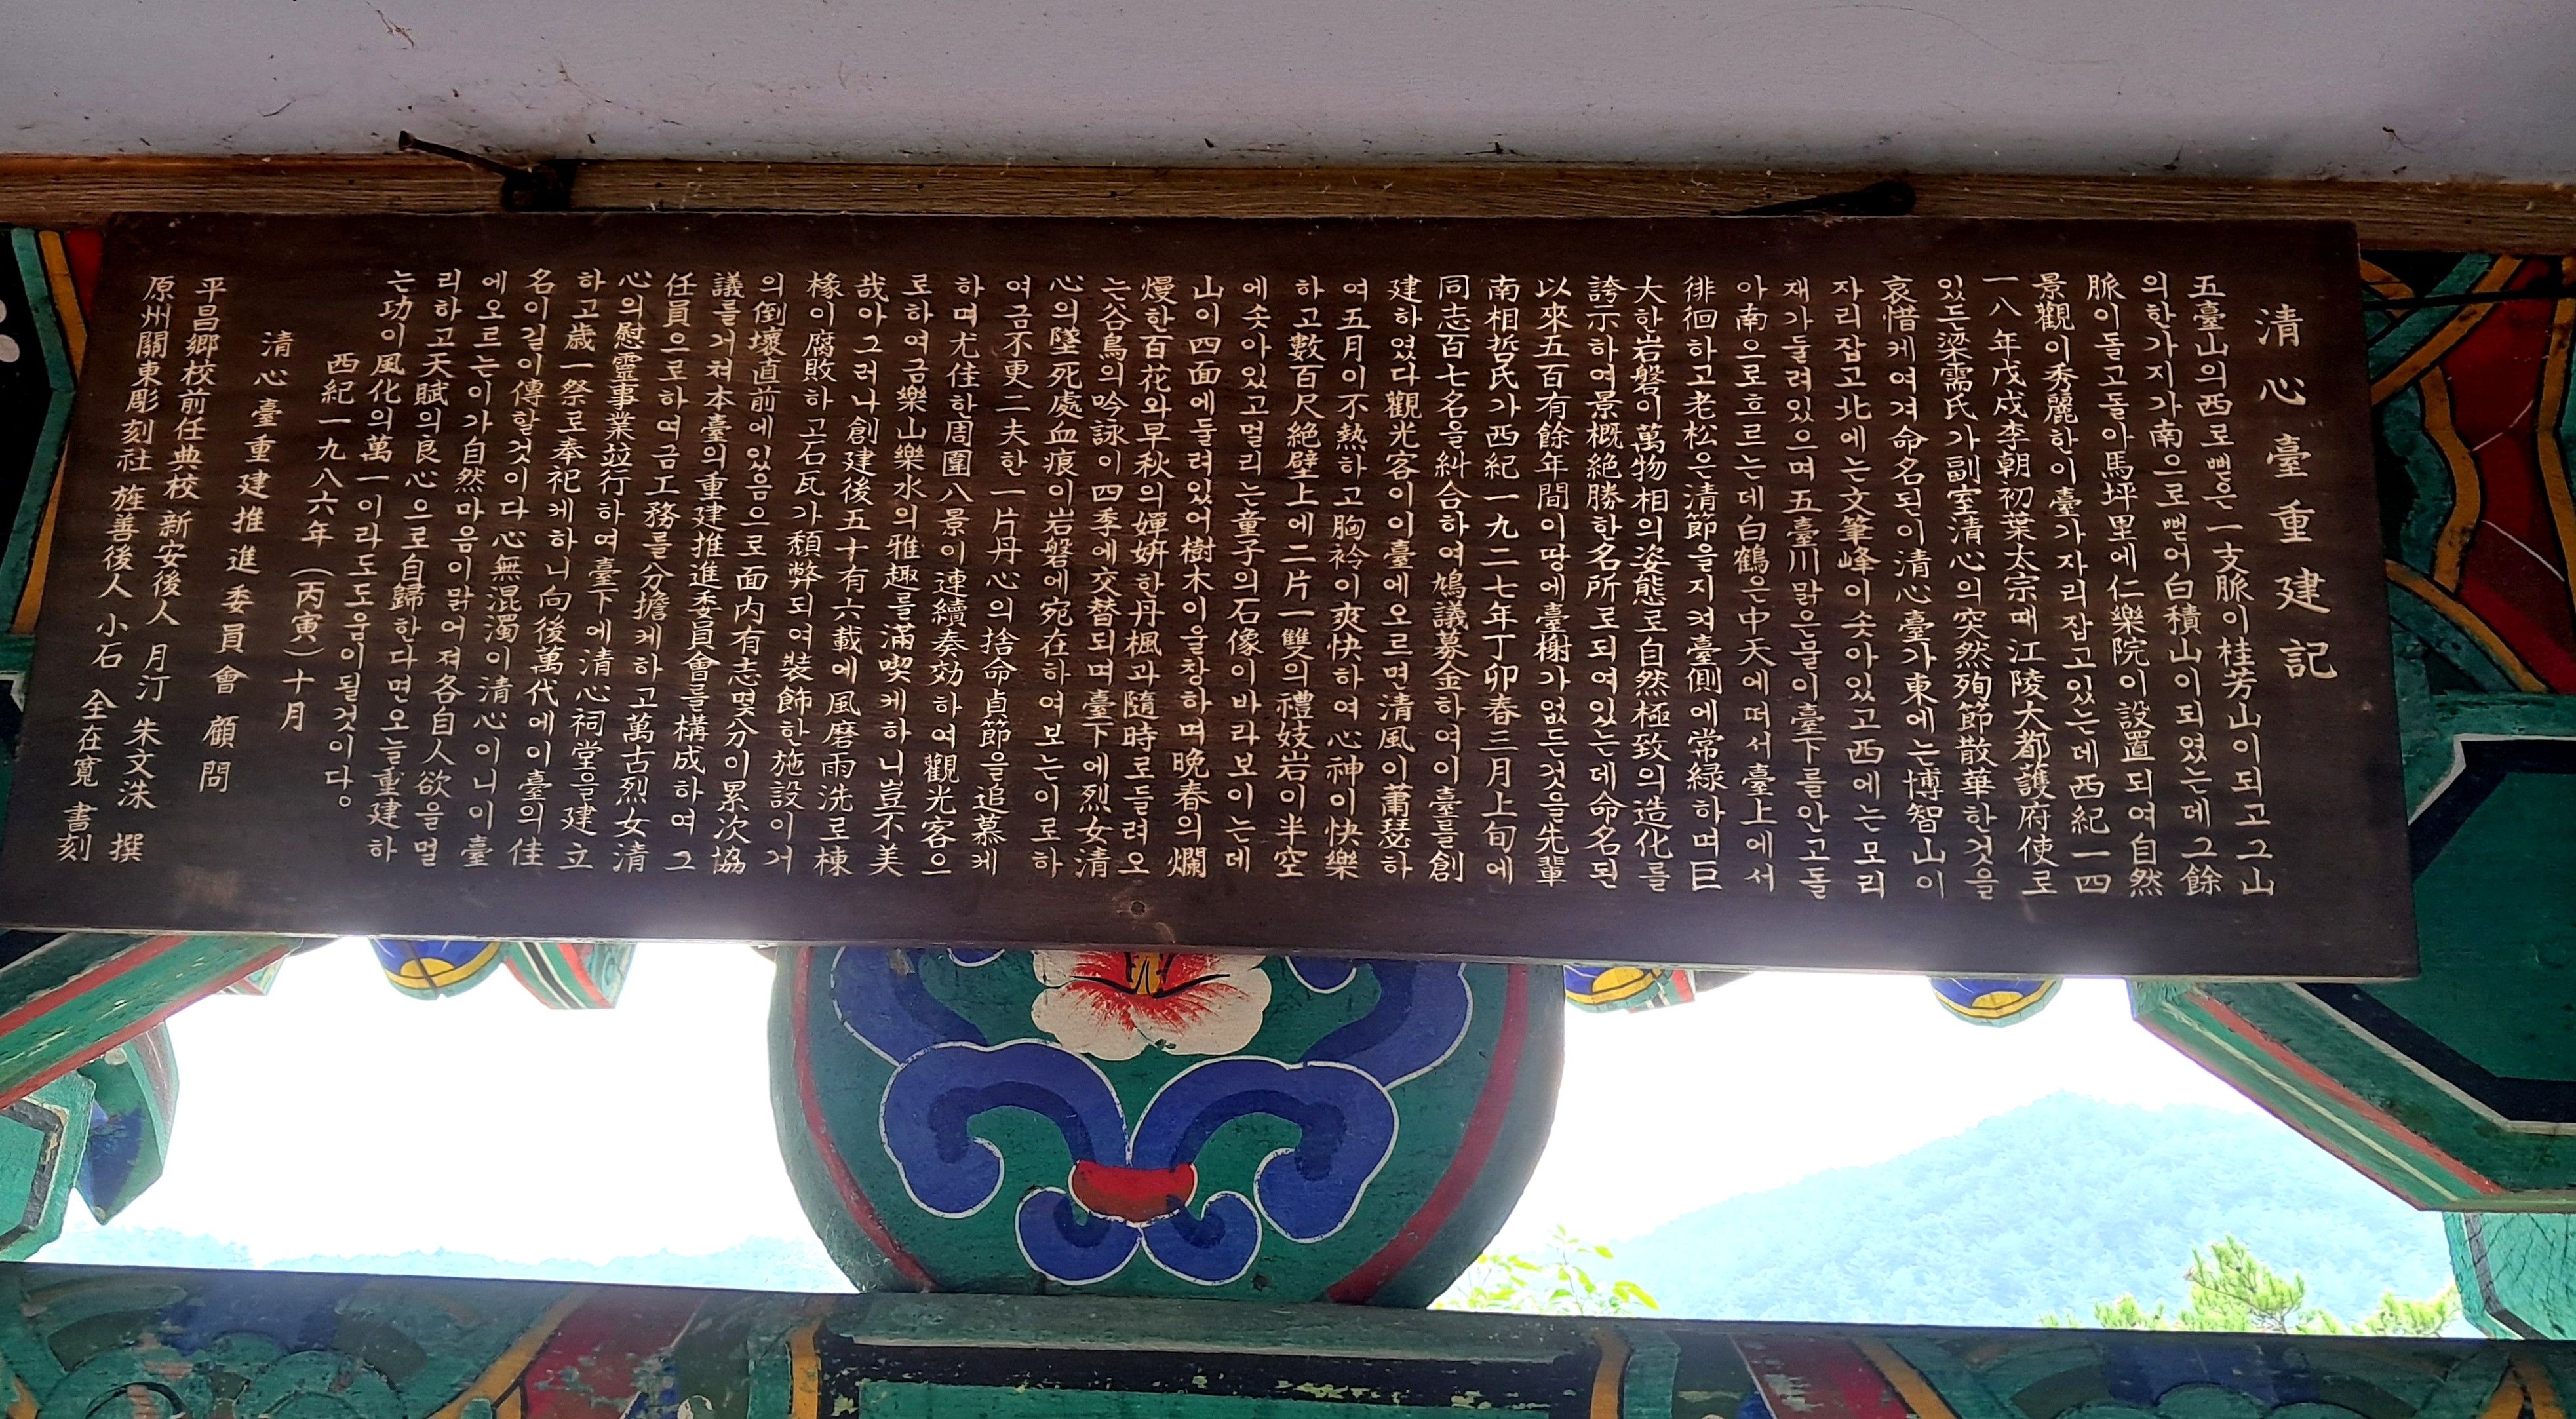 清心臺重建記
五臺山의西로뻗은一支脈이桂芳山이되고그山
의한가지가南으로뻗어白積山이되였는데그餘
脈이돌고돌아馬坪里에仁樂院이設置되여自然
景觀이秀麗한이臺가자리잡고있는데西紀一四
一八年戊戌李朝初葉太宗때江陵大都護府使로
있든梁需氏가副室清心의突然殉節散華한것을
哀惜케여겨命名된이清心臺가東에는博智山이
자리잡고北에는文筆峰이솟아있고西에는모리
재가들려있으며五臺川맑은물이臺下를안고돌
아南으로흐르는데白鶴은中天에떠서臺上에서
徘徊하고老松은清節을지켜臺側에常緑하며巨
大한岩磐이萬物相의姿態로自然極致의造化를
誇示하여景概絶勝한名所로되여있는데命名된
以來五百有餘年間이땅에臺榭가없든것을先輩
南相哲氏가西紀一九二七年丁卯春三月上旬에
同志百七名을糾合하여鳩議募金하여이臺를創
建하였다觀光客이이臺에오르면清風이蕭瑟하
여五月이不熱하고胸衿이爽快하여心神이快樂
하고數百尺絶壁上에二片一雙의禮妓岩이半空
에솟아있고멀리는童子의石像이바라보이는데
山이四面에들려있어樹木이을창하며晩春의爛
熳한百花와早秋의嬋姸한丹楓과隨時로들려오
는谷鳥의吟詠이四季에交替되며臺下에烈女清
心의墜死處血痕이岩磐에宛在하여보는이로하
여금不更二夫한一片丹心의捨命貞節을追慕케
하며尤佳한周圍八景이連續奏効하여觀光客으
로하여금樂山樂水의雅趣를滿喫케하니豈不美
哉아그러나創建後五十有六載에風磨雨洗로棟
椽이腐敗하고石瓦가頹弊되여裝飾한施設이거
의倒壞直前에있음으로面内有志몇分이累次協
議를거쳐本臺의重建推進委員會를構成하여그
任員으로하여금工務를分擔케하고萬古烈女清
心의慰靈事業並行하여臺下에清心祠堂을建立
하고歲一祭로奉祀케하니向後萬代에이臺의佳
名이길이傳할것이다心無混濁이清心이니이臺
에오르는이가自然마음이맑어져各自人欲을멀
리하고天賦의良心으로自歸한다면오늘重建하
는功이風化의萬一이라도도움이될것이다。
西紀一九八六年(丙寅)十月
清心臺重建推進委員會 顧問
平昌鄕校前任典校 新安後人 月汀 朱文洙 撰
原州關東彫刻社 旌善後人 小石 全在寬 書刻